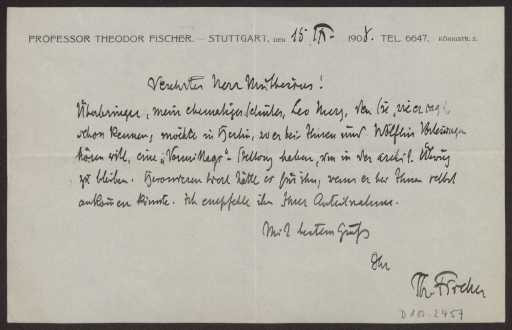 PROFESSOR THEODOR FISCHER. — STUTTGART, DEN 15. IX. 1908. TEL. 6647. KÖNIGSTR. 2.
Verehrter Herr Muthesius!
Überbringer, mein ehemaliger Schüler, Leo , den Sie, wie er sagt
schon kennen, möchte in Berlin, wo er bei Ihnen und Wölfflin Vorlesungen
hören will, eine „Vormittags"-Stellung haben, um in der archit. Übung
zu bleiben. hätte er für ihn, wenn er bei Ihnen selbst
ankommen könnte. Ich empfehle ihn Ihrer Anteilnahme.
Mit bestem Gruß
Ihr
Th. Fischer
D 102-2457